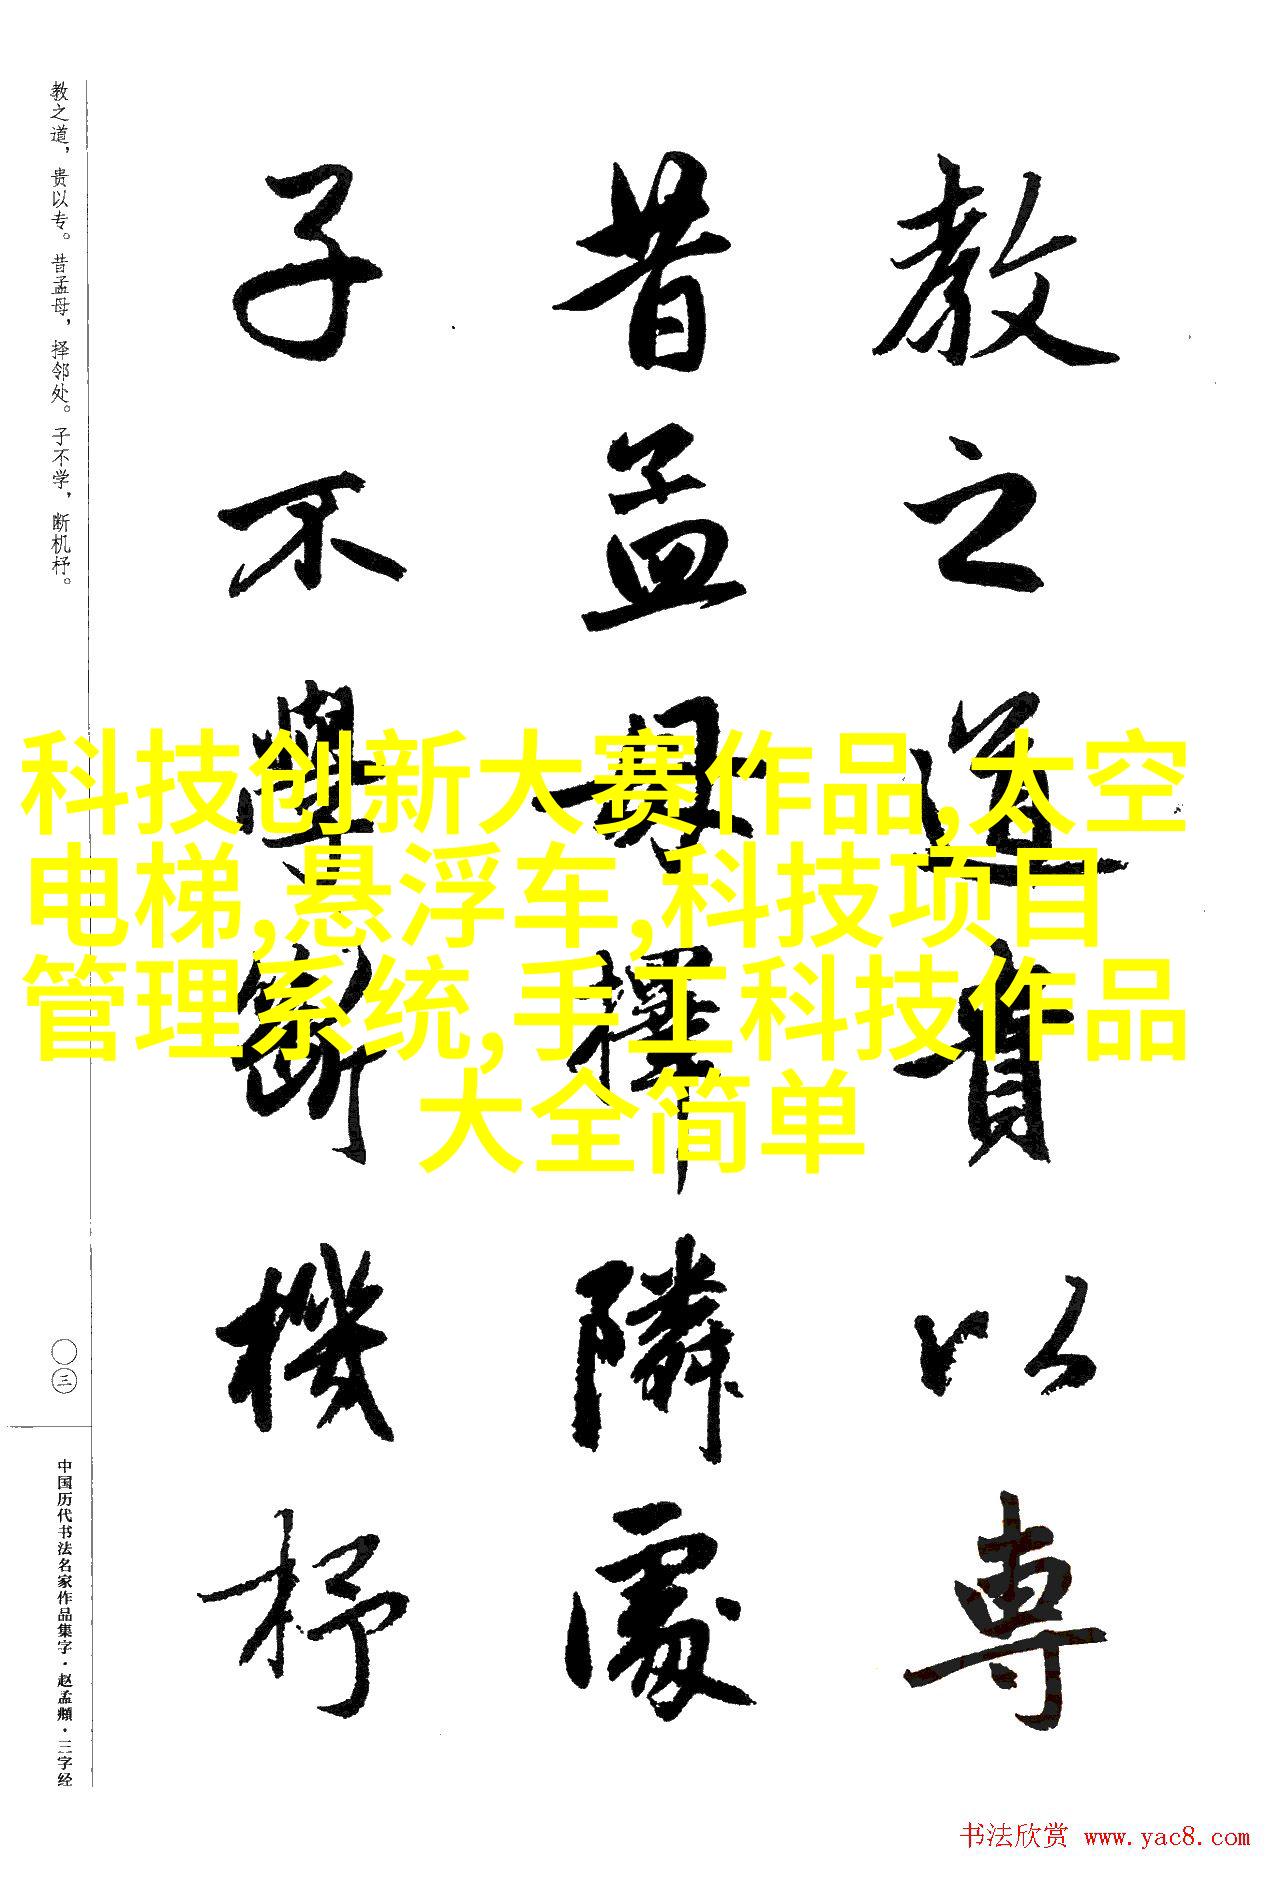 教之道，贵以专。昔孟母，择邻处。子不学，断机杼。
教之道貴以專
昔孟母擇隣處
子不學斷機杼
科技创新大赛作品,太空
电梯,悬浮车,科技项目
管理系统,手工科技作品
大全简单
〇三
中国历代书法名家作品集字·赵孟頫·三字经
书法欣赏 www.yac8.com